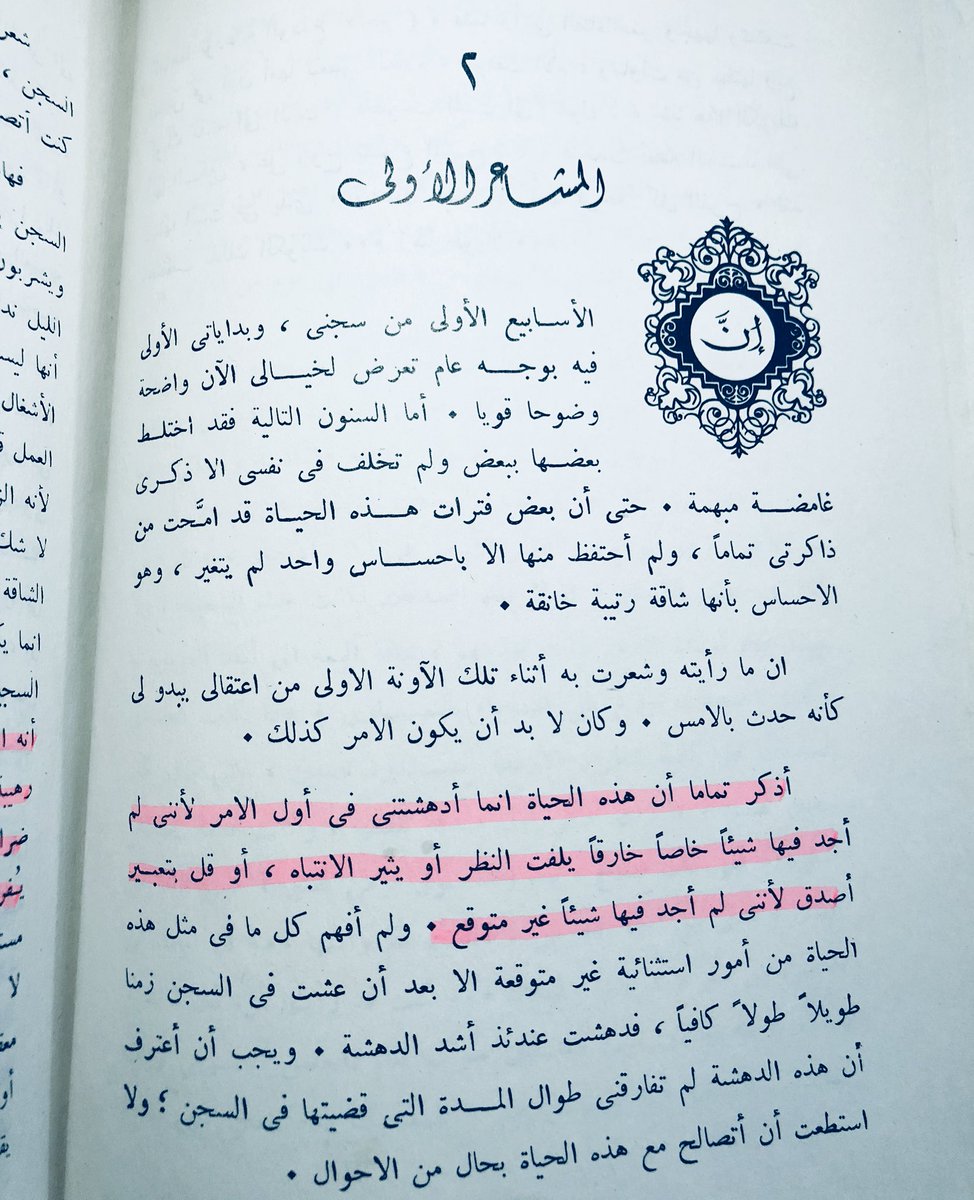 ٢
المشاعر الأولى
إنَّ
الأسابيع الأولى من سجنى ، وبداياتى الأولى
فيه بوجه عام تعرض لخيالى الآن واضحة
وضوحا قويا . أما السنون التالية فقد اختلط
بعضها ببعض ولم تخلف فى نفسى الا ذكرى
غامضة مبهمة . حتى أن بعض فترات هذه الحياة قد امَّحت من
ذاكرتى تماماً ، ولم أحتفظ منها الا باحساس واحد لم يتغير ، وهو
الاحساس بأنها شاقة رتيبة خانقة .
ان ما رأيته وشعرت به أثناء تلك الآونة الاولى من اعتقالى يبدو لى
كأنه حدث بالامس . وكان لا بد أن يكون الامر كذلك .
أذكر تماما أن هذه الحياة انما أدهشتنى فى أول الامر لأننى لم
أجد فيها شيئاً خاصاً خارقاً يلفت النظر أو يثير الانتباه ، أو قل بتعبير
أصدق لأننى لم أجد فيها شيئاً غير متوقع . ولم أفهم كل ما فى مثل هذه
الحياة من أمور استثنائية غير متوقعة الا بعد أن عشت فى السجن زمنا
طويلاً طولاً كافياً ، فدهشت عندئذ أشد الدهشة . ويجب أن أعترف
أن هذه الدهشة لم تفارقنى طوال المدة التى قضيتها فى السجن ؛ ولا
استطعت أن أتصالح مع هذه الحياة بحال من الاحوال .
السجن ،
كنت
السجن
ويشربون
الليل
أنها
الأشغال
العمل
لأنه
لا شك
الشاقة
انما
أنه
لا